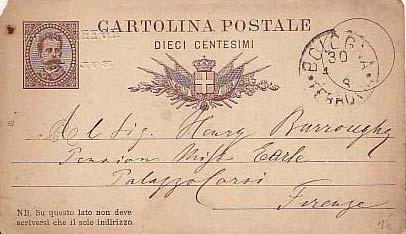 CARTOLINA POSTALE
DIECI CENTESIMI
BOLOGNA
30
FERROVIA
Al Sig. Henry Burroughs
Pension Miss Earle
Palazzo Corsi
Firenze
NB. Su questo lato non deve
scriversi che il solo indirizzo.